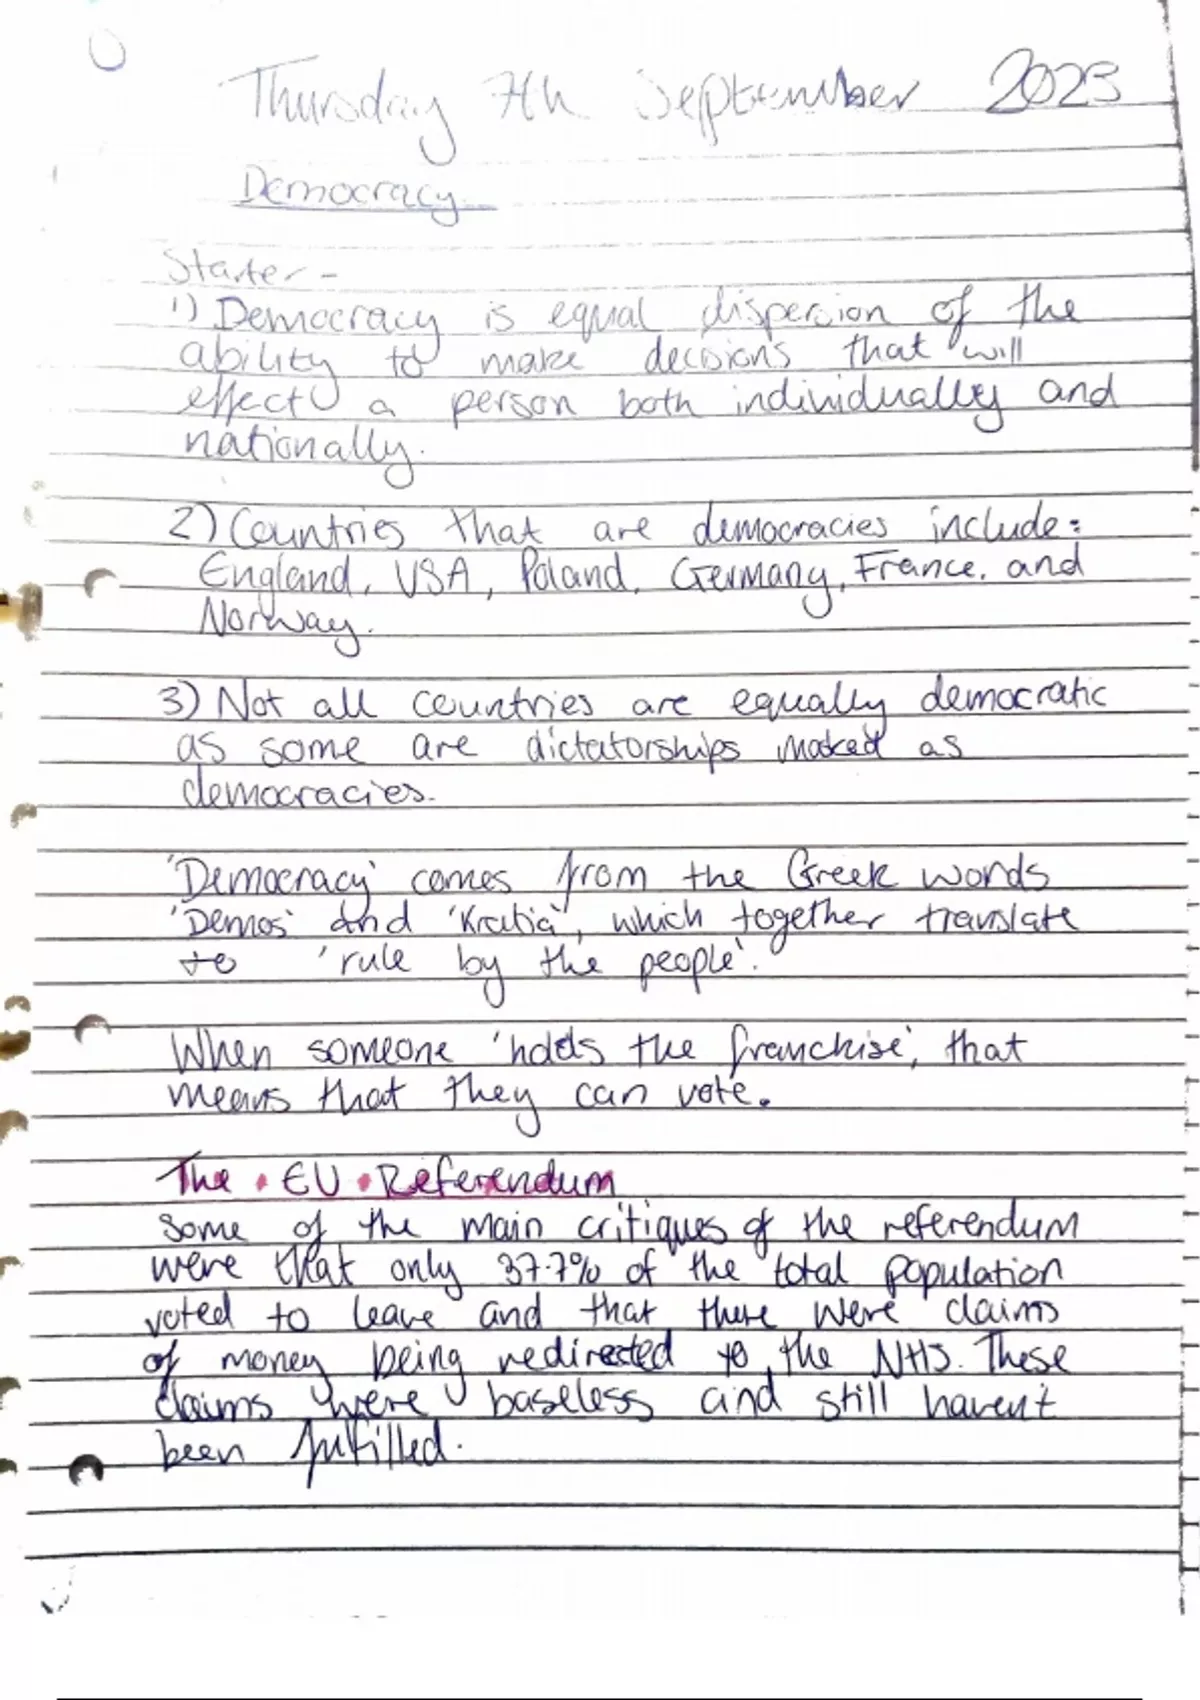 Thursday 7th September 2023
Democracy
Starter -
1) Democracy is equal dispersion of the
ability to make decisions that will
effect a person both individually and
nationally.
2) Countries that are democracies include:
England, USA, Poland, Germany, France, and
Norway.
3) Not all countries are equally democratic
as some are dictatorships masked as
democracies.
'Democracy' comes from the Greek words
'Demos' and 'Kratia', which together translate
to 'rule by the people'.
When someone 'holds the franchise', that
means that they can vote.
The • EU • Referendum
Some of the main critiques of the referendum
were that only 37.7% of the total population
voted to leave and that there were claims
of money being redirected to the NHS. These
claims were baseless and still haven't
been fulfilled.